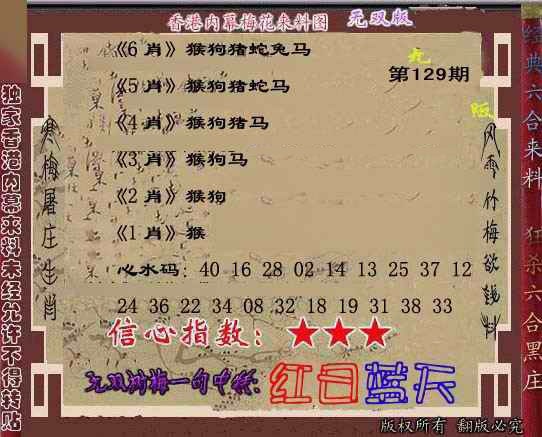 香港内幕梅花来料图 无双版
《6 肖》猴狗猪蛇兔马
无
第129期
《5 肖》猴狗猪蛇马
版
《4 肖》猴狗猪马
《3 肖》猴狗马
《2 肖》猴狗
《1 肖》猴
心水码：40 16 28 02 14 13 25 37 12
24 36 22 34 08 32 18 19 31 38 33
信心指数：★★★
红日蓝天
独家香港内幕来料未经允许不得转贴
寒梅屠庄生肖
风雨竹梅欲钱料
经典六合来料
狂杀六合黑庄
版权所有 翻版必究